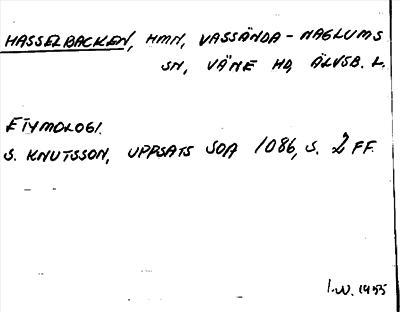 HASSELBACKEN, HMN, VASSÄNDA-NAGLUMS
SN, VÄNE HD, ÄLVSB. L.
ETYMOLOGI.
S. KNUTSSON, UPPSATS SOA 1086, S. 2 FF.
I.W. 1955